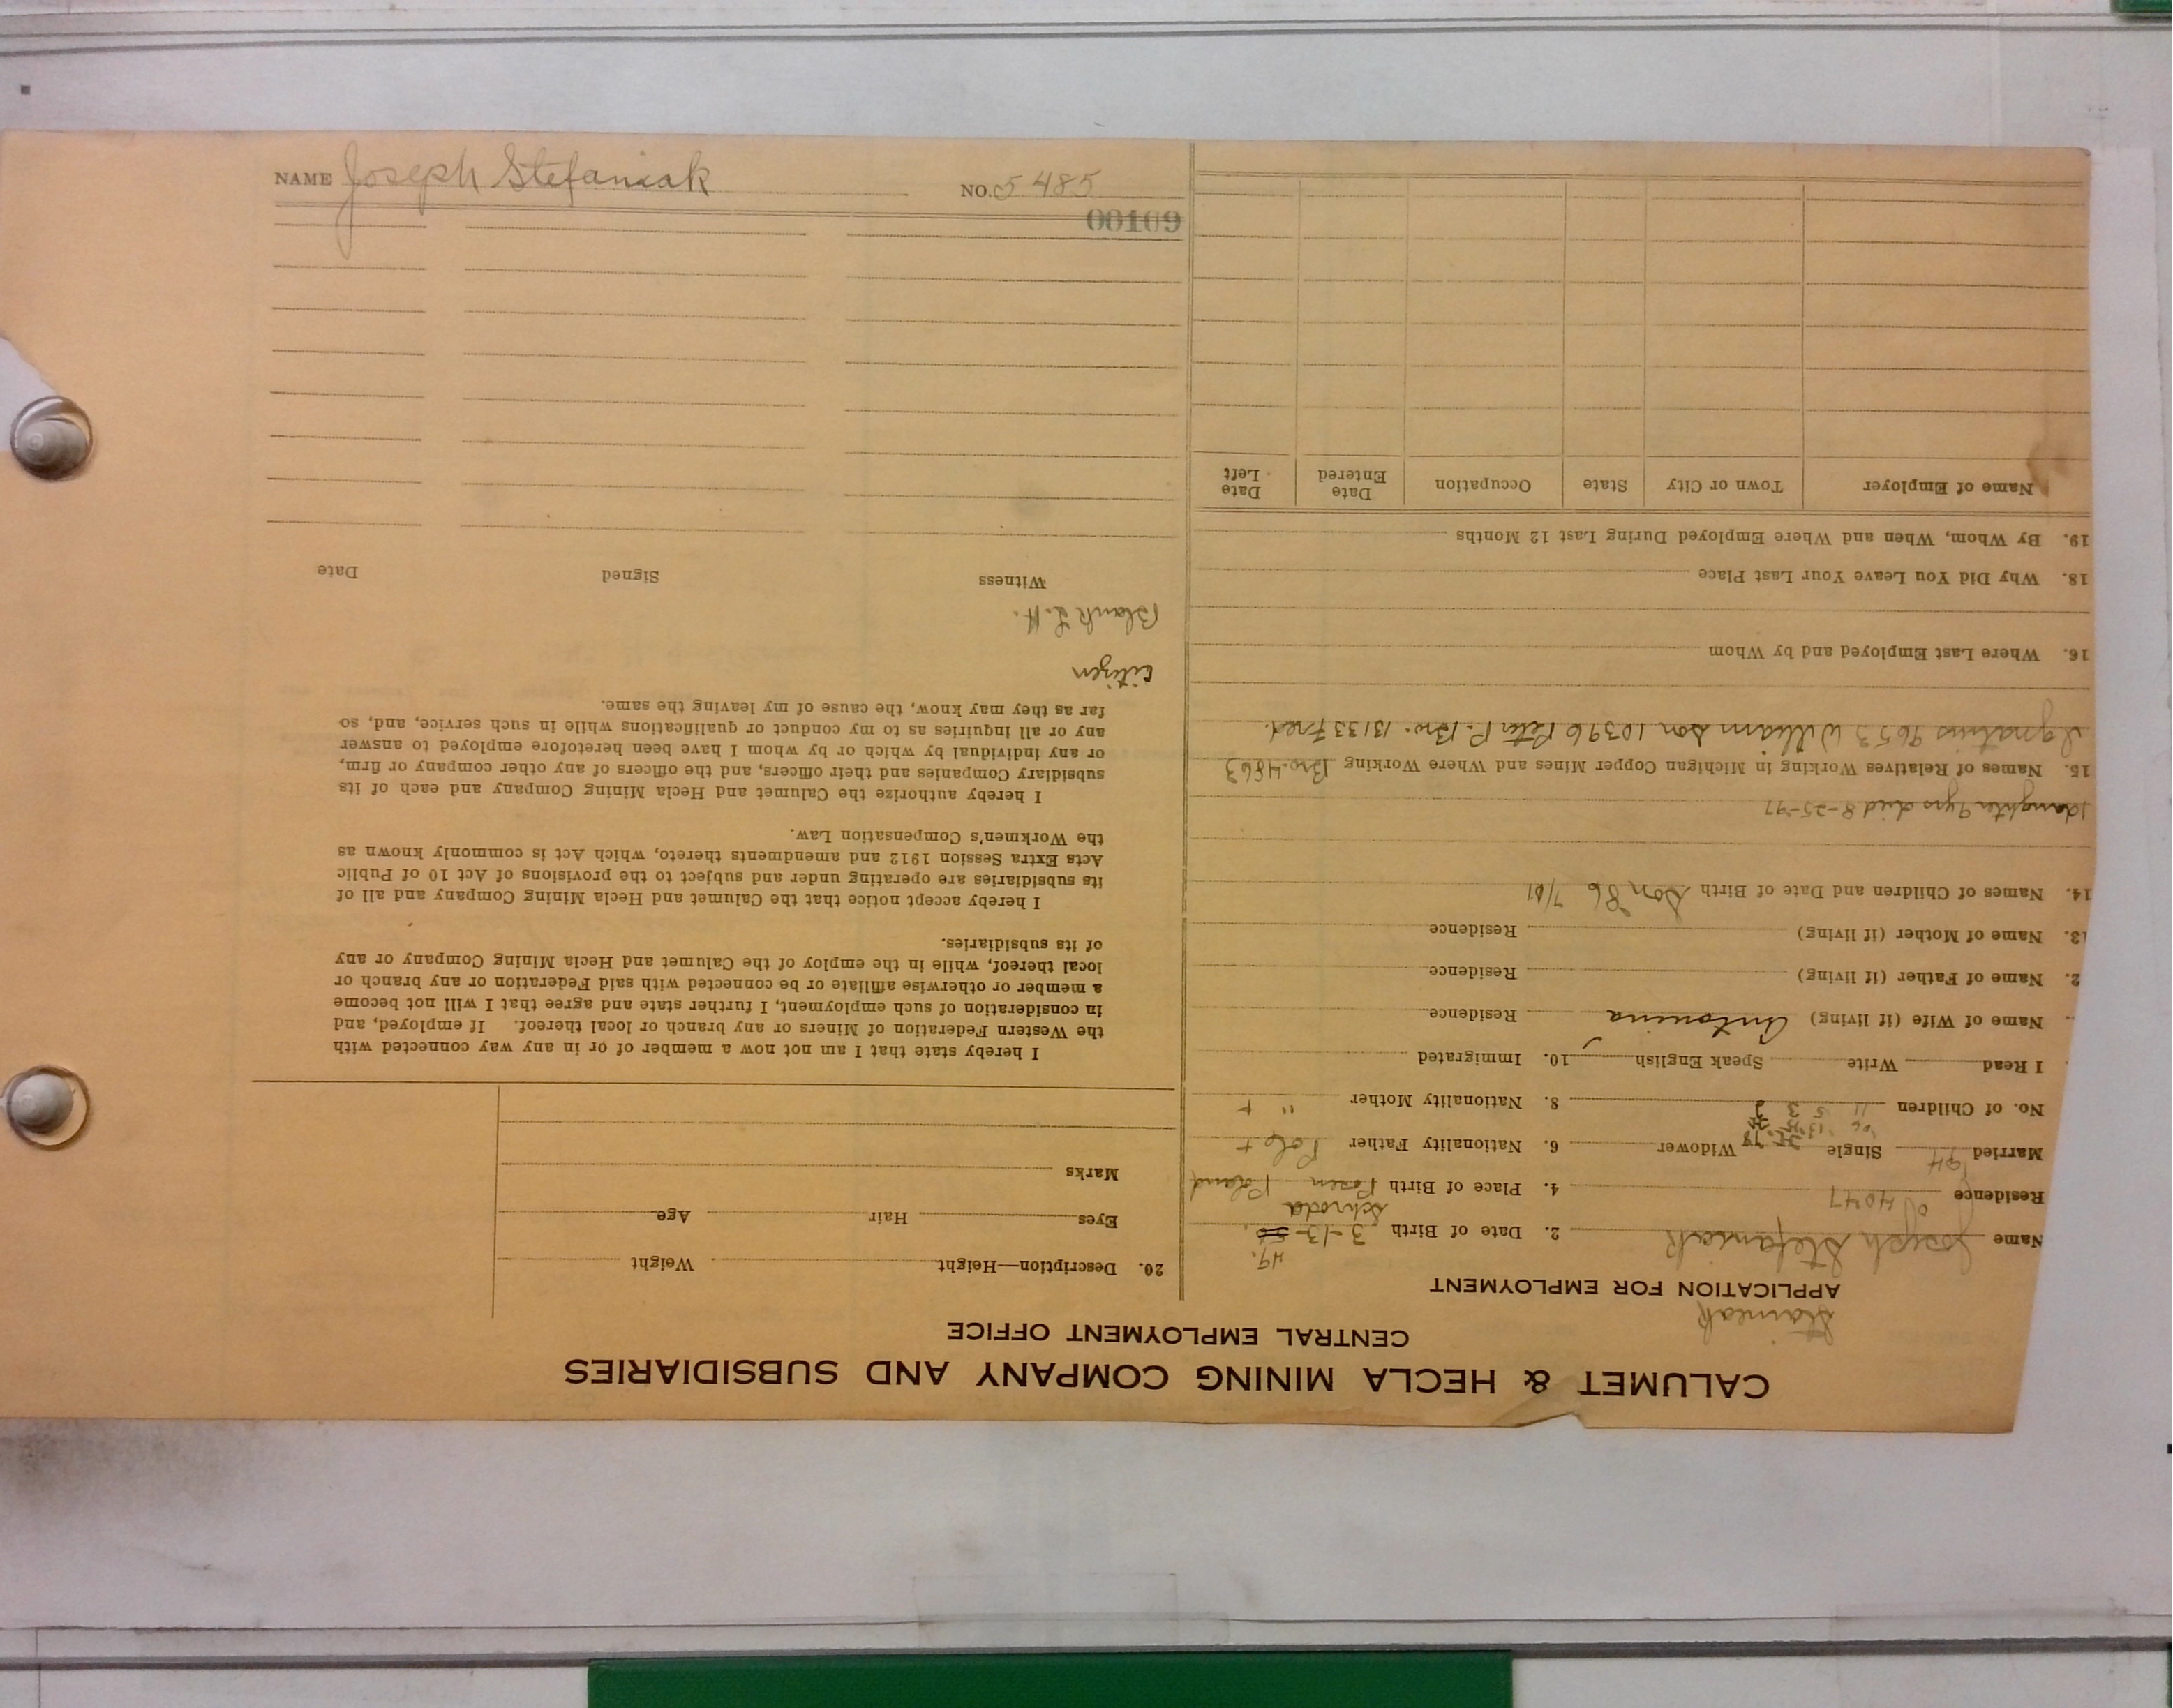 NAME Joseph Stefaniak NO. 5485
00109
CALUMET & HECLA MINING COMPANY AND SUBSIDIARIES
CENTRAL EMPLOYMENT OFFICE
Staniak
APPLICATION FOR EMPLOYMENT
Name Joseph Stefaniak 2. Date of Birth 3-13- 49.
Schroda
Residence 4047 4. Place of Birth Posen Poland
Married 94 Single Widower 6. Nationality Father Pole +
No. of Children 11 5 3 8. Nationality Mother " +
I Read Write Speak English 10. Immigrated
Name of Wife (if living) Antonina Residence
2. Name of Father (if living) Residence
13. Name of Mother (if living) Residence
14. Names of Children and Date of Birth Son 86 7/01
1 daughter 9 yrs died 8-25-97
15. Names of Relatives Working in Michigan Copper Mines and Where Working Bro. 4863
Ignatius 9653 William son 10396 Peter P. Bro. 13133 Fred.
16. Where Last Employed and by Whom
18. Why Did You Leave Your Last Place
19. By Whom, When and Where Employed During Last 12 Months
Name of Employer Town or City State Occupation Date Entered Date Left
20. Description—Height Weight
Eyes Hair Age
Marks
I hereby state that I am not now a member of or in any way connected with
the Western Federation of Miners or any branch or local thereof. If employed, and
in consideration of such employment, I further state and agree that I will not become
a member or otherwise affiliate or be connected with said Federation or any branch or
local thereof, while in the employ of the Calumet and Hecla Mining Company or any
of its subsidiaries.
I hereby accept notice that the Calumet and Hecla Mining Company and all of
its subsidiaries are operating under and subject to the provisions of Act 10 of Public
Acts Extra Session 1912 and amendments thereto, which Act is commonly known as
the Workmen's Compensation Law.
I hereby authorize the Calumet and Hecla Mining Company and each of its
subsidiary Companies and their officers, and the officers of any other company or firm,
or any individual by which or by whom I have been heretofore employed to answer
any or all inquiries as to my conduct or qualifications while in such service, and, so
far as they may know, the cause of my leaving the same.
Citizen
Blank L.H.
Witness Signed Date